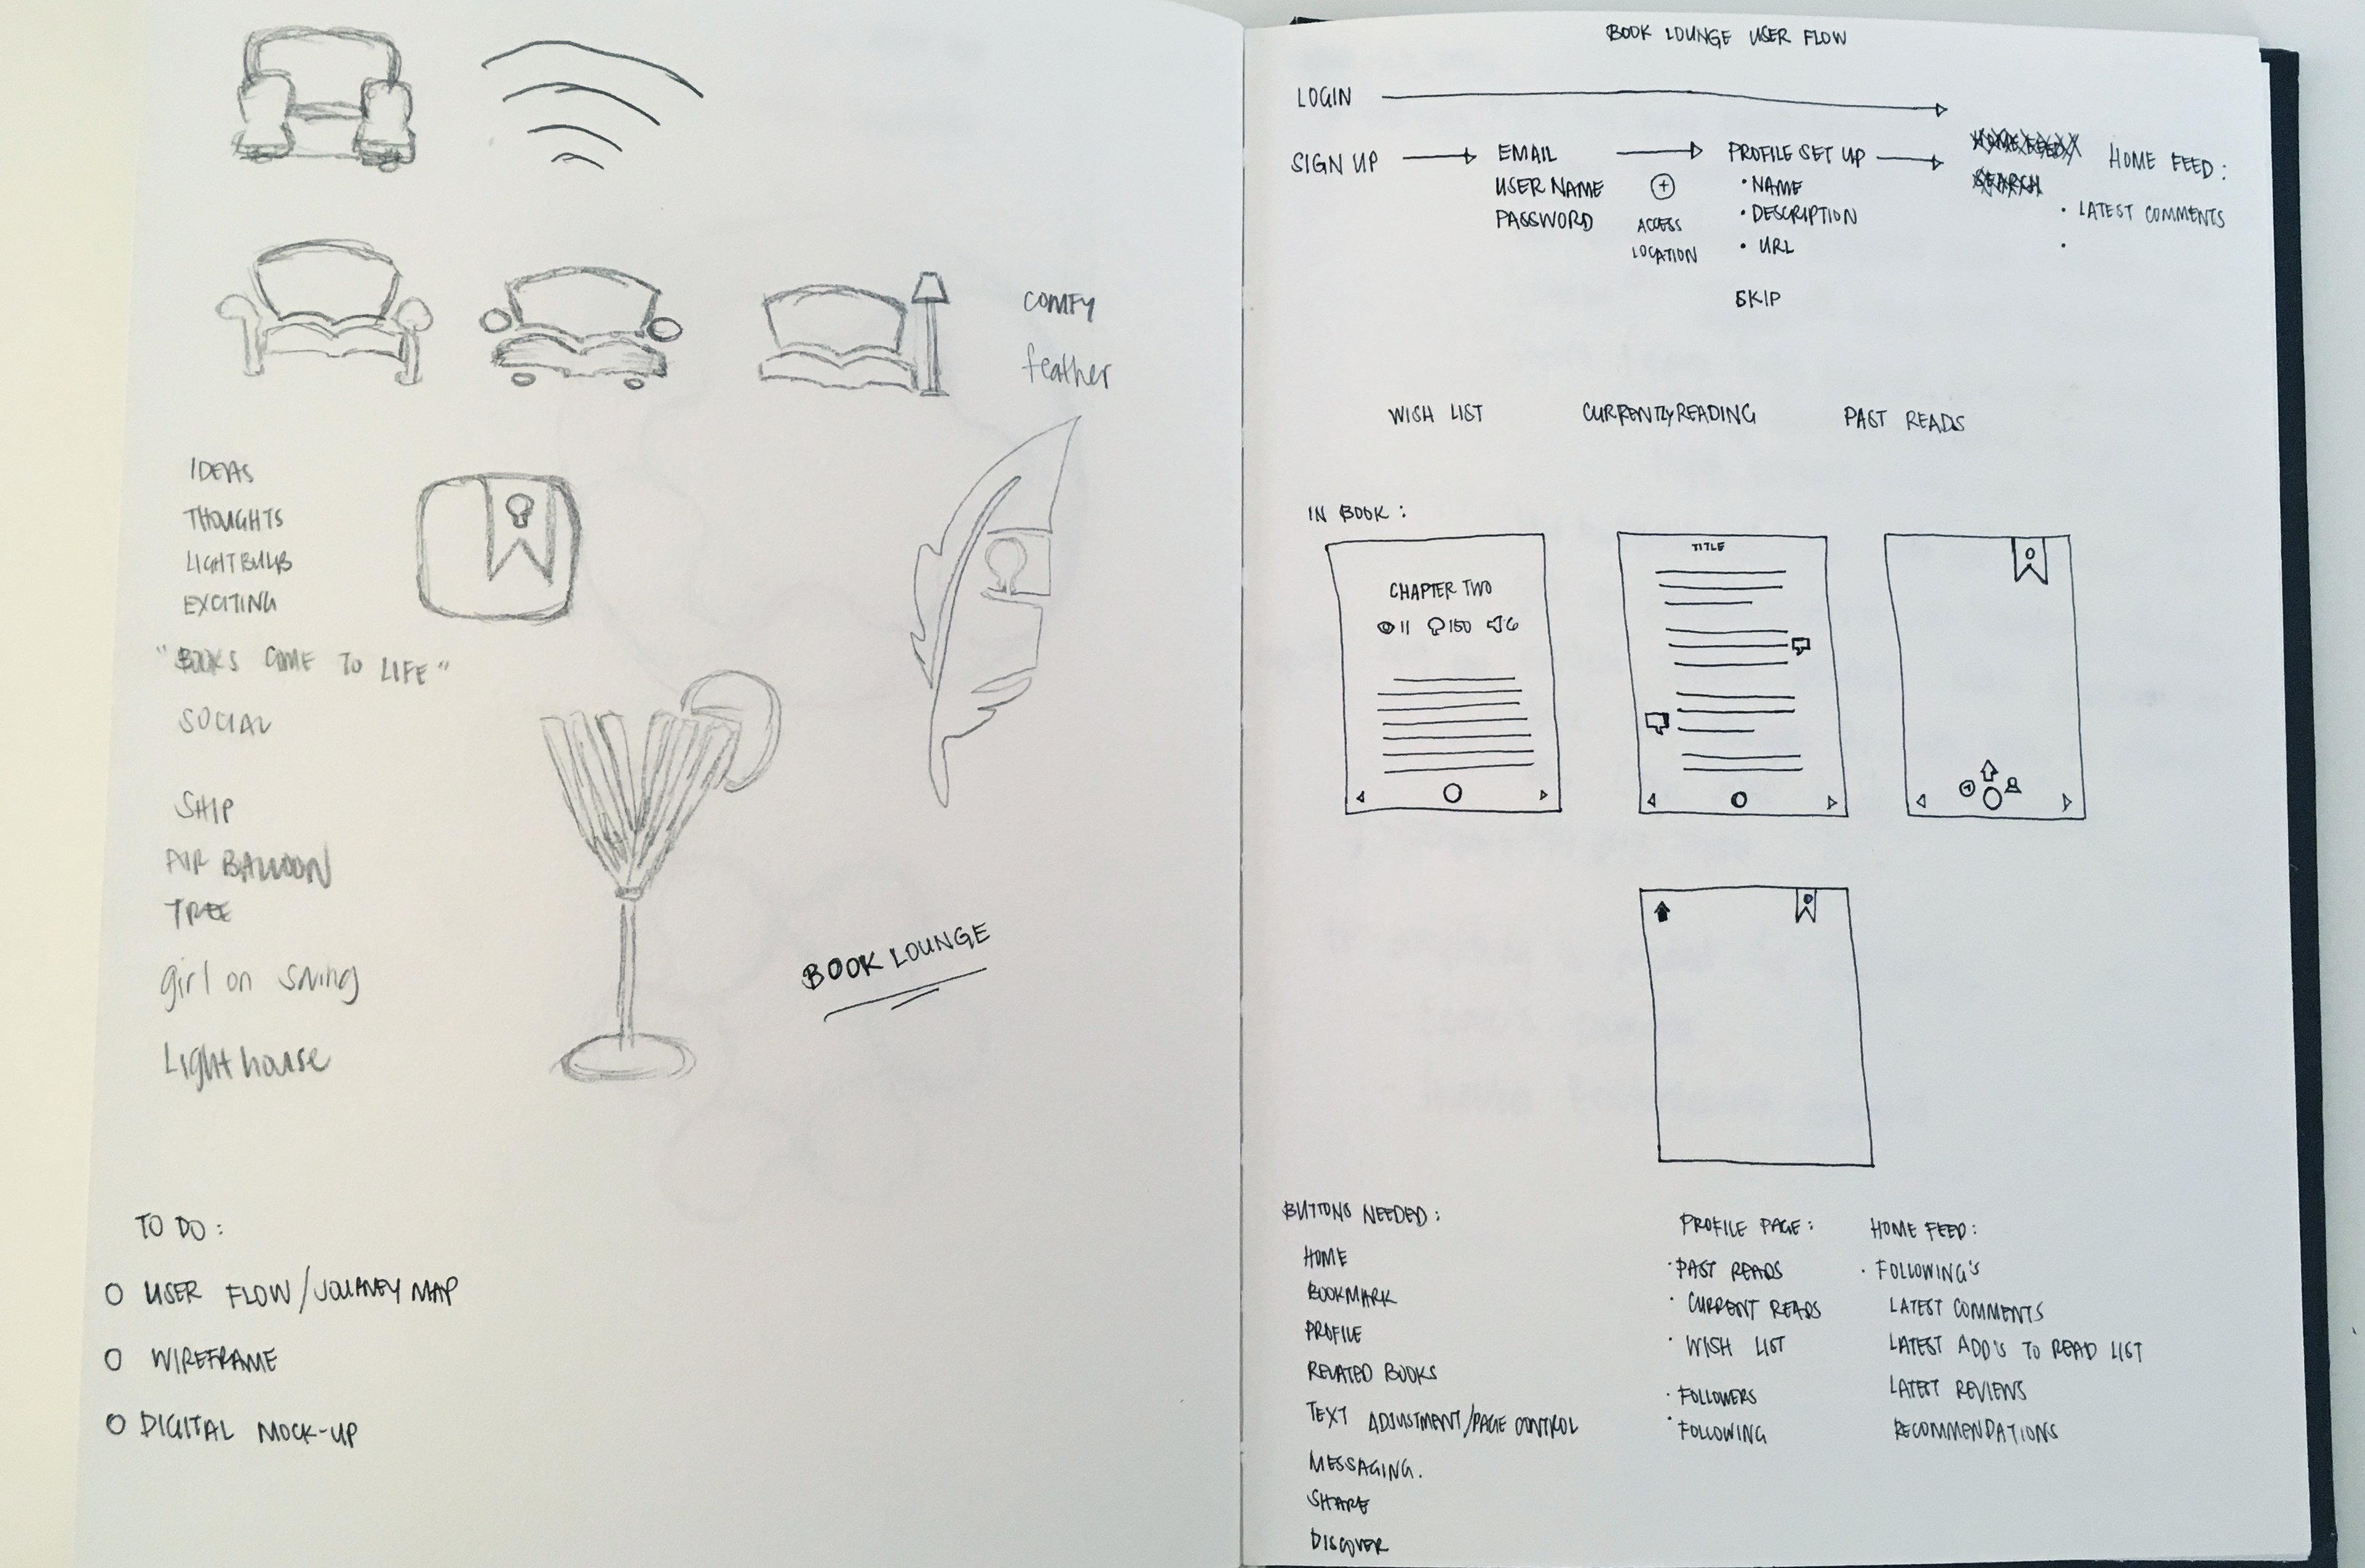 COMFY
feather
IDEAS
THOUGHTS
LIGHTBULB
EXCITING
"BOOKS COME TO LIFE"
SOCIAL
SHIP
AIR BALLOON
TREE
girl on swing
Lighthouse
BOOK LOUNGE
TO DO:
USER FLOW/JOURNEY MAP
WIREFRAME
DIGITAL MOCK-UP
BOOK LOUNGE USER FLOW
LOGIN
SIGN UP
EMAIL
USER NAME
PASSWORD
ACCESS
LOCATION
PROFILE SET UP
• NAME
• DESCRIPTION
• URL
SKIP
HOME FEED
SEARCH
HOME FEED:
• LATEST COMMENTS
•
WISH LIST
CURRENTLY READING
PAST READS
IN BOOK:
CHAPTER TWO
11 150 6
TITLE
BUTTONS NEEDED:
HOME
BOOKMARK
PROFILE
RELATED BOOKS
TEXT ADJUSTMENT/PAGE CONTROL
MESSAGING.
SHARE
DISCOVER
PROFILE PAGE:
• PAST READS
• CURRENT READS
• WISH LIST
• FOLLOWERS
• FOLLOWING
HOME FEED:
• FOLLOWING'S
LATEST COMMENTS
LATEST ADD'S TO READ LIST
LATEST REVIEWS
RECOMMENDATIONS